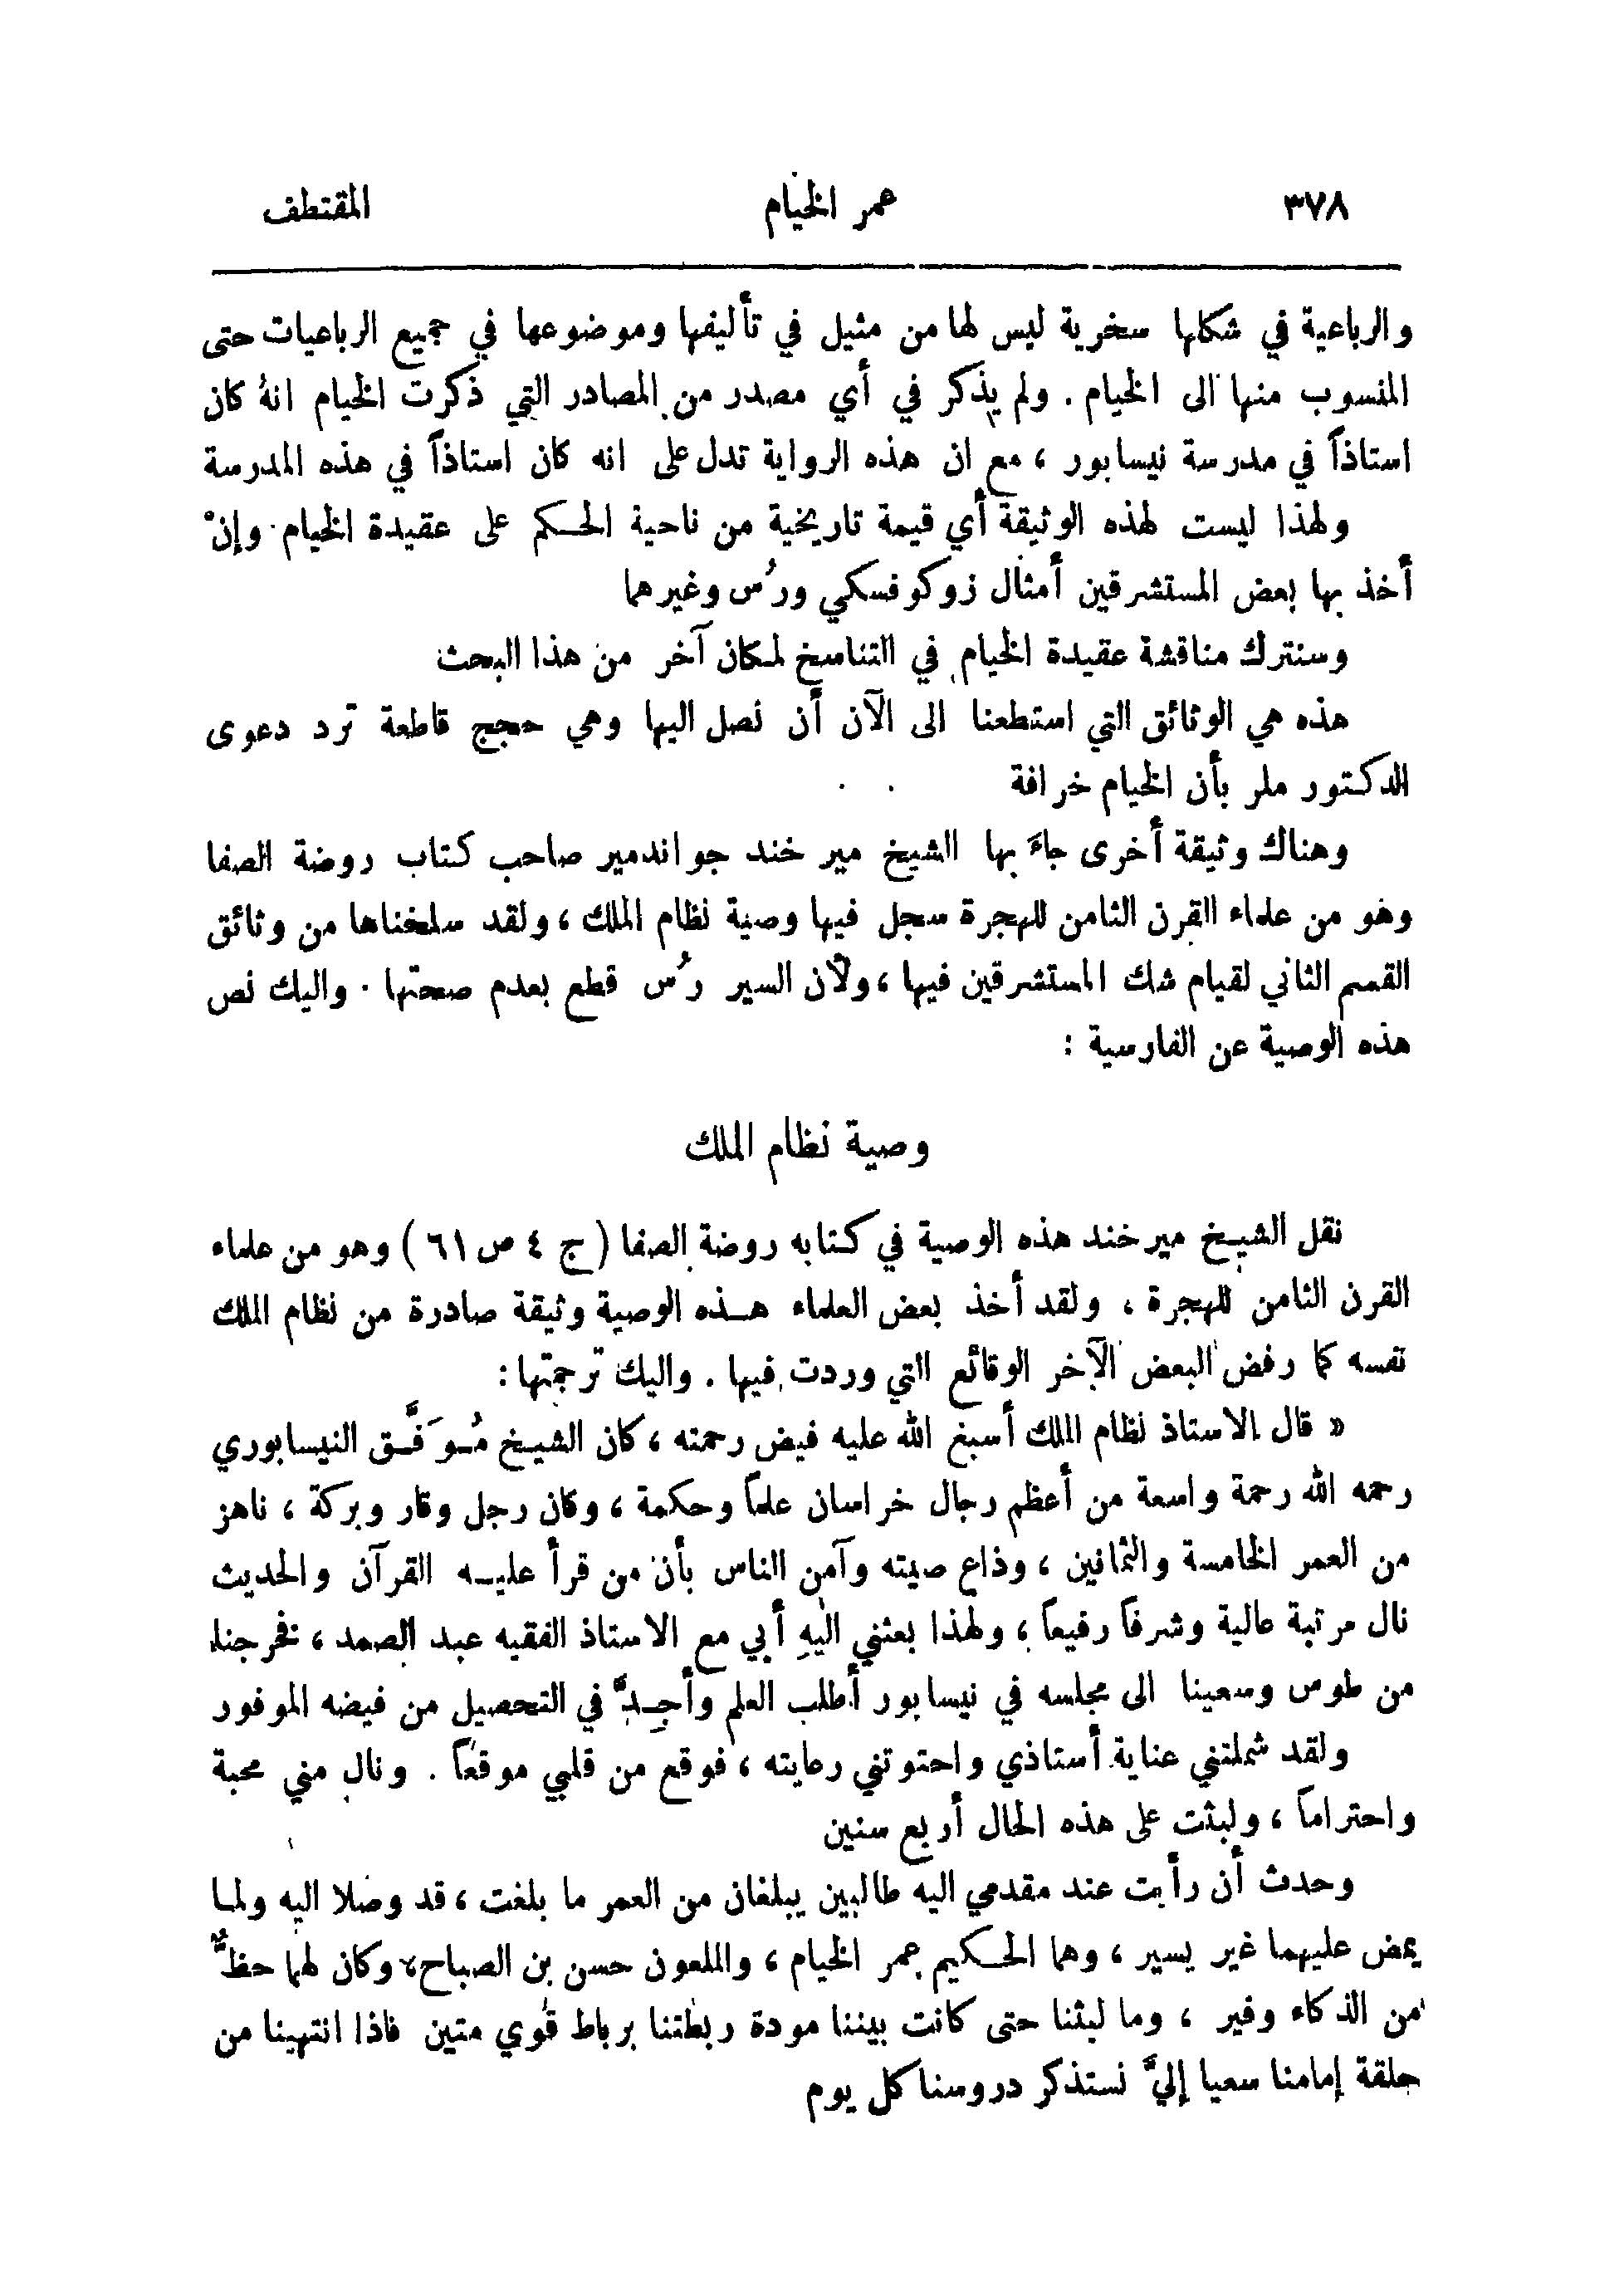 ٣٧٨ عمر الخيام المقتطف
والرباعية في شكلها سخرية ليس لها من مثيل في تأليفها وموضوعها في جميع الرباعيات حتى
المنسوب منها الى الخيام . ولم يذكر في أي مصدر من المصادر التي ذكرت الخيام انهُ كان
استاذاً في مدرسة نيسابور ، مع ان هذه الرواية تدل على انه كان استاذاً في هذه المدرسة
ولهذا ليست لهذه الوثيقة أي قيمة تاريخية من ناحية الحكم على عقيدة الخيام . وإنْ
أخذ بها بعض المستشرقين أمثال زوكوفسكي ورُس وغيرهما
وسنترك مناقشة عقيدة الخيام في التناسخ لمكان آخر من هذا البحث
هذه هي الوثائق التي استطعنا الى الآن أن نصل اليها وهي حجج قاطعة ترد دعوى
الدكتور ملر بأن الخيام خرافة
وهناك وثيقة أخرى جاءَ بها الشيخ مير خند جواندمير صاحب كتاب روضة الصفا
وهو من علماء القرن الثامن للهجرة سجل فيها وصية نظام الملك ، ولقد سلخناها من وثائق
القسم الثاني لقيام شك المستشرقين فيها ، ولأن السير رُس قطع بعدم صحتها . واليك نص
هذه الوصية عن الفارسية :
وصية نظام الملك
نقل الشيخ ميرخند هذه الوصية في كتابه روضة الصفا ( ج ٤ ص ٦١ ) وهو من علماء
القرن الثامن للهجرة ، ولقد أخذ بعض العلماء هذه الوصية وثيقة صادرة من نظام الملك
نفسه كما رفض البعض الآخر الوقائع التي وردت فيها . واليك ترجمتها :
« قال الاستاذ نظام الملك أسبغ الله عليه فيض رحمته ، كان الشيخ مُوَفَّق النيسابوري
رحمه الله رحمة واسعة من أعظم رجال خراسان علماً وحكمة ، وكان رجل وقار وبركة ، ناهز
من العمر الخامسة والثمانين ، وذاع صيته وآمن الناس بأن من قرأ عليه القرآن والحديث
نال مرتبة عالية وشرفاً رفيعاً ، ولهذا بعثني اليهِ أبي مع الاستاذ الفقيه عبد الصمد ، فخرجنا
من طوس وسعينا الى مجلسه في نيسابور أطلب العلم وأجِدُّ في التحصيل من فيضه الموفور
ولقد شملتني عناية أستاذي واحتوتني رعايته ، فوقع من قلبي موقعاً . ونال مني محبة
واحتراماً ، ولبثت على هذه الحال أربع سنين
وحدث أن رأيت عند مقدمي اليه طالبين يبلغان من العمر ما بلغت ، قد وصلا اليه ولما
يمض عليهما غير يسير ، وهما الحكيم عمر الخيام ، والملعون حسن بن الصباح ، وكان لهما حظٌّ
من الذكاء وفير ، وما لبثنا حتى كانت بيننا مودة ربطتنا برباط قوي متين فاذا انتهينا من
حلقة إمامنا سعيا إليَّ نستذكر دروسنا كل يوم